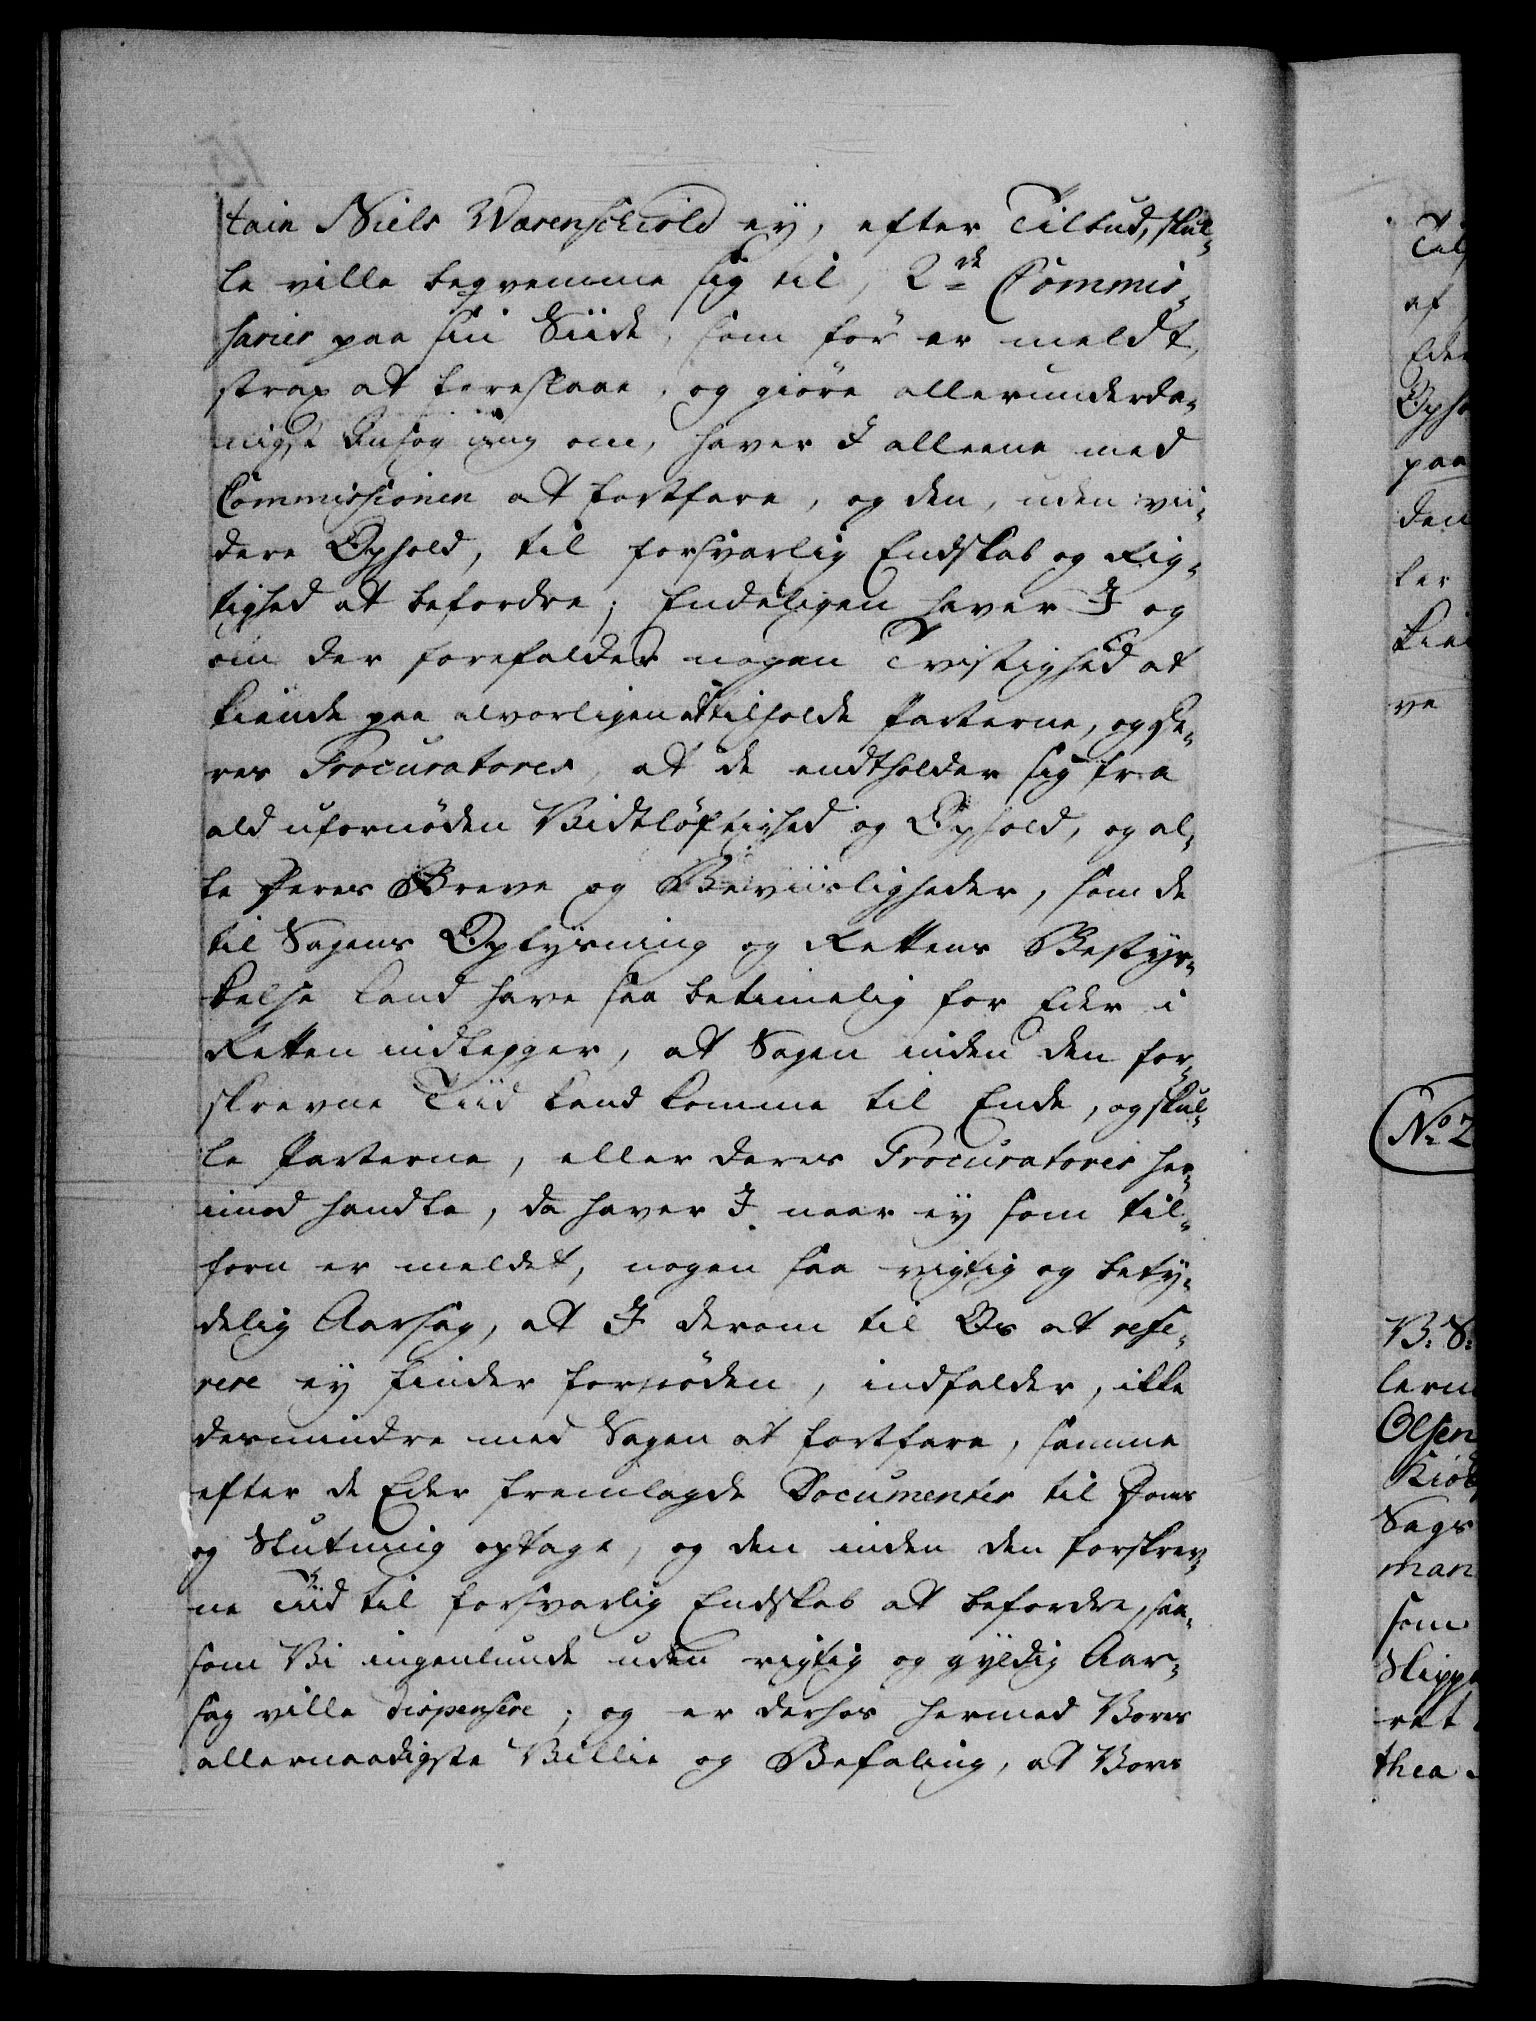 tain Niels Warenschiold ey, efter Tilbud, skul-
le ville beqvemme sig til, 2de Commis-
sarier paa sin Siide, som før er meldt,
strax at foreslaae, og giöre allerunderda-
nigst Ansøgning om, haver I alleene med
Commissionen at fortfare, og den, uden vii-
dere Ophold, til forsvarlig Endskab og Rig-
tighed at befordre; Endeligen haver I og
om der forefalder nogen Tvistighed at
kiende paa alvorligen at tilholde Parterne, og De-
res Procuratores, at de endtholder sig fra
ald ufornöden Vidtlöftighed og Ophold, og al-
le Deres Breve og Beviisligheder, som de
til Sagens Oplysning og Rettens Bestyr-
kelse kand have saa betimelig for Eder i
Retten indlegger, at Sagen inden den for-
skrevne Tiid kand komme til Ende, og skul-
le Parterne, eller deres Procuratores her-
imod handle, da haver I naar ey som til-
forn er meldet, nogen saa vigtig og bety-
delig Aarsag, at I derom til Os at refe-
rere ey finder fornöden, indfalder, ikke
desmindre med Sagen at fortfare, samme
efter de Eder fremlagde Documenter til Doms
og Slutning optage, og den inden den forskrev-
ne Tiid til forsvarlig Endskab at befordre, saa-
som Vi ingenlunde uden vigtig og gyldig Aar-
sag ville dispensere; og er derhos hermed Vores
allernaadigste Villie og Befaling, at Vores
af
paa
den
ve
No 2
V. S.
Olsen
Sags
man
som
Skipp
ret
thea